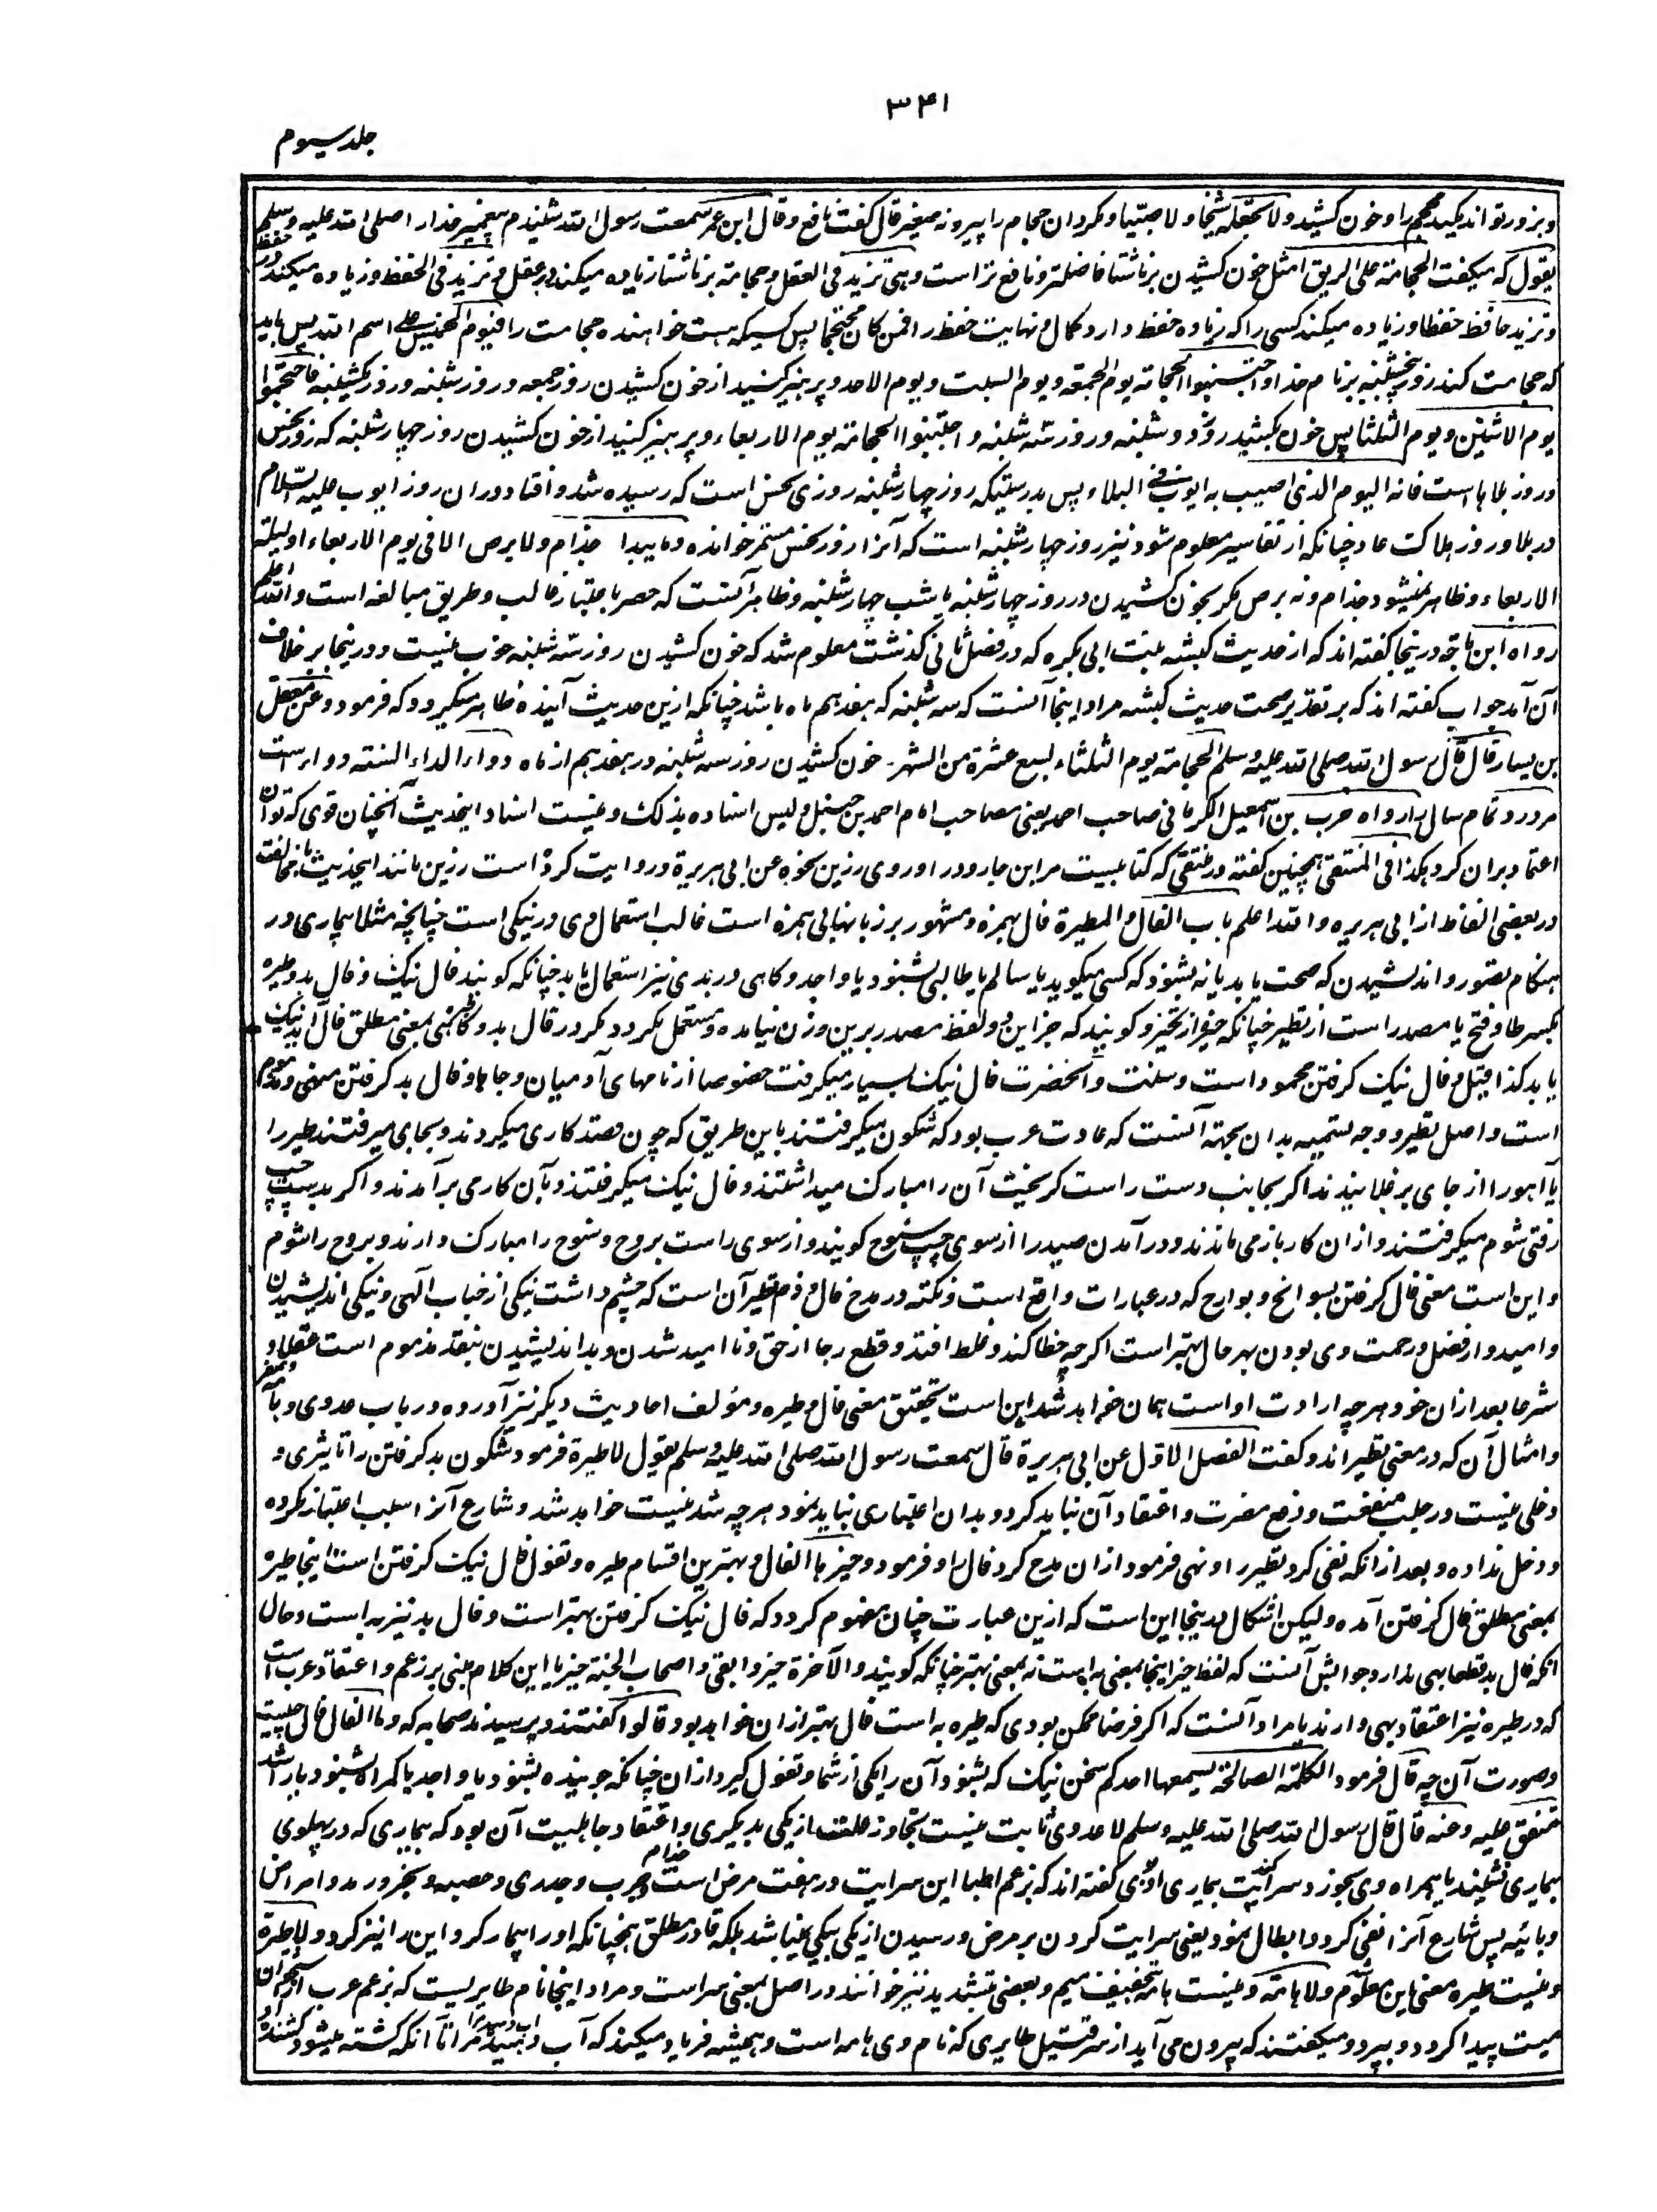 ۳۴۱
جلد سیوم
و بزور تواند مکید محجم را و خون کشید ولا تجعله شیخا ولا صبیا و مگردان حجام را پیر و نه صغیر قال گفت نافع و قال ابن عمر سمعت رسول الله شنیدم پیغمبر خدا را صلی الله علیه وسلم
یقول که میگفت الحجامة علی الریق امثل خون کشیدن بر ناشتا فاضلتر و نافع تر است وهی تزید فی العقل و حجامة بر ناشتا زیاده میکند در عقل و تزید فی الحفظ و زیاده میکند در حفظ
و تزید حافظ حفظا و زیاده میکند کسی را که زیاده حفظ دارد کمال و نهایت حفظ را فمن کان محتجما پس کسیکه هست خواهنده حجامت را فیوم الخمیس علی اسم الله پس باید
که حجامت کند روز پنجشنبه بر نام خدا و اجتنبوا الحجامة یوم الجمعة و یوم السبت و یوم الاحد و پرهیز کنید از خون کشیدن روز جمعه و روز شنبه و روز یکشنبه فاحتجموا
یوم الاثنین و یوم الثلثا پس خون بکشید روز دوشنبه و روز سه شنبه و اجتنبوا الحجامة یوم الاربعاء و پرهیز کنید از خون کشیدن روز چهارشنبه که روز نحس
و روز بلاها است فانه الیوم الذی اصیب به ایوب فی البلاء پس بدرستیکه روز چهارشنبه روزی نحس است که رسیده شد و افتاد دران روز ایوب علیه السلام
در بلا و روز هلاکت عاد چنانکه از تفاسیر معلوم شود نیز روز چهارشنبه است که آنرا روز نحس مستمر خوانده وما یبدا جذام ولا برص الا فی یوم الاربعاء او لیلة
الاربعاء و ظاهر نمیشود جذام و نه برص مگر بخون کشیدن در روز چهارشنبه یا شب چهارشنبه و ظاهر آنست که حصر باعتبار غالب و طریق مبالغه است والله اعلم
رواه ابن ماجه درینجا گفته اند که از حدیث کبشه بنت ابی بکره که در فصل ثانی گذشت معلوم شد که خون کشیدن روز سه شنبه خوب نیست و درینجا بر خلاف
آن آمد جواب گفته اند که بر تقدیر صحت حدیث کبشه مراد اینجا آنست که سه شنبه که هفدهم ماه باشد چنانکه ازین حدیث آینده ظاهر میگردد که فرمود وعن معقل
بن یسار قال قال رسول الله صلی الله علیه وسلم الحجامة یوم الثلثاء لسبع عشرة من الشهر خون کشیدن روز سه شنبه در هفدهم از ماه دواء لداء السنة دوا است
مر درد تمام سال را رواه حرب بن اسمعیل الکرمانی صاحب احمد یعنی مصاحب امام احمد بن حنبل ولیس اسناده بذلک و نیست اسناد اینحدیث آنچنان قوی که توان
اعتماد بران کرد هکذا فی المنتقی همچنین گفته در منتقی که کتابیست مر ابن جارود را و روی رزین نحوه عن ابی هریرة و روایت کرده است رزین مانند اینحدیث با مخالفت
در بعضی الفاظ از ابی هریره والله اعلم باب الفال والطیرة فال بهمزه و مشهور بر زبانها بی همزه است غالب استعمال وی در نیکی است چنانچه مثلا بیماری در
هنگام تصور و اندیشیدن که صحت یابد یا نه بشنود که کسی میگوید یا سالم یا طالبی بشنود یا واجد و کاهی در بدی نیز استعمال یابد چنانکه گویند فال نیک و فال بد وطیره
بکسر طا و فتح یا مصدر است از تطیر چنانکه خیر از تخیر و گویند که جز این دو لفظ مصدر برین وزن نیامده و مستعمل نگردد مگر در فال بد و گاهی بمعنی مطلق فال آید نیک
یا بد کذا قیل و فال نیک گرفتن محمود است و سنت و آنحضرت فال نیک بسیار میگرفت خصوصا از نامهای آدمیان و جاها و فال بد گرفتن منهی و مذموم
است و اصل تطیر و وجه تسمیه بدان بجهته آنست که عادت عرب بود که شگون میگرفتند باین طریق که چون قصد کاری میکردند و بجای میرفتند طیر را
یا آهو را از جای بر غلانیدند اگر بجانب دست راست گریخت آن را مبارک میداشتند و فال نیک میگرفتند و بآن کار می برآمدند و اگر بدست چپ
رفتی شوم میگرفتند و ازان کار باز می ماندند و در آمدن صید را از سوی چپ سنوح گویند و از سوی راست بروح و سنوح را مبارک دارند و بروح را شوم
و این است معنی فال گرفتن بسوانح و بوارح که در عبارات واقع است و نکته در مدح فال و ذم تطیر آن است که چشم داشت نیکی از جناب آلهی و نیکی اندیشیدن
و امیدوار فضل و رحمت وی بودن بهر حال بهتر است اگرچه خطا کند و غلط افتد و قطع رجا از حق و نا امید شدن و بد اندیشیدن بنقد مذموم است عقلا و
شرعا بعد ازان خود هر چه ارادت او است همان خواهد شد این است تحقیق معنی فال و طیره و مؤلف احادیث دیگر نیز آورده در باب عدوی و هامه و صفر
و امثال آن که در معنی تطیر اند و گفت الفصل الاول عن ابی هریرة قال سمعت رسول الله صلی الله علیه وسلم یقول لا طیرة فرمود شگون بد گرفتن را تاثیری و
دخلی نیست در جلب منفعت و دفع مضرت و اعتقاد آن نباید کرد و بدان اعتباری نباید نمود هر چه شدنیست خواهد شد و شارع آنرا سبب اعتبار نکرده
و دخل نداده و بعد ازانکه نفی کرد تطیر را و نهی فرمود ازان مدح کرد فال را و فرمود و خیرها الفال و بهترین اقسام طیره و تفول فال نیک گرفتن است اینجا طیره
بمعنی مطلق فال گرفتن آمده ولیکن اشکال درینجا این است که ازین عبارت چنان مفهوم گردد که فال نیک گرفتن بهتر است و فال بد نیز به است و حال
انکه فال بد قطعا بهی ندارد جوابش آنست که لفظ خیر اینجا بمعنی به است نه بمعنی بهتر چنانکه گویند والآخرة خیر و ابقی و اصحاب الجنة خیر یا این کلام مبنی بر زعم و اعتقاد عرب است
که در طیره نیز اعتقاد بهی دارند یا مراد آنست که اگر فرضا ممکن بودی که طیره به است فال بهتر ازان خواهد بود قالوا گفتند و پرسیدند صحابه که وما الفال فال چیست
و صورت آن چه قال فرمود الکلمة الصالحة یسمعها احدکم سخن نیک که بشنود آن را یکی از شما و تفول گیرد ازان چنانکه جوینده بشنود یا واجد یا گمراه بشنود یا راشد
متفق علیه وعنه قال قال رسول الله صلی الله علیه وسلم لا عدوی ثابت نیست تجاوز علت از یکی بدیگری و اعتقاد جاهلیت آن بود که بیماری که در پهلوی
بیماری نشیند یا همراه وی بخورد سرایت کند بیماری او بوی گفته اند که بزعم اطبا این سرایت در هفت مرض است جذام و جرب و جدری و حصبه و بخر و رمد و امراض
وبائیه پس شارع آنرا نفی کرد و ابطال نمود یعنی سرایت کردن بر مرض و رسیدن از یکی بیکی نمیباشد بلکه قادر مطلق همچنانکه او را بیمار کرد این را نیز کرد ولا طیرة
و نیست طیره معنی این معلوم ولا هامة و نیست هامه بتخفیف میم و بعضی بتشدید نیز خوانند در اصل بمعنی سر است و مراد اینجا نام طایریست که بزعم عرب از استخوان
میت پیدا گردد و بپرد و میگفتند که بیرون می آید از سر قتیل طایری که نام وی هامه است و همیشه فریاد میکند که آب دهید مرا تا آنکه کشته میشود کشنده